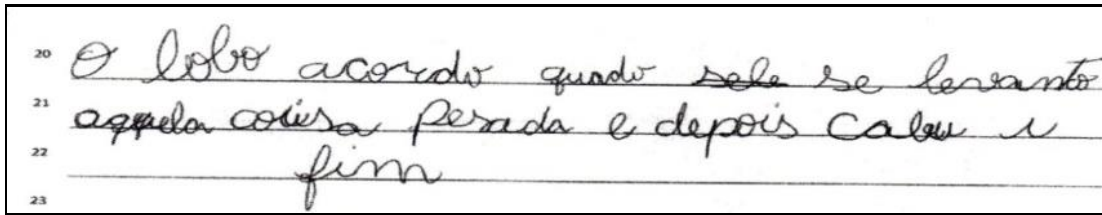 20 O lobo acordo quado sele se levanto
21 aquela coiisa pesada e depois cabu i
22 fim
23